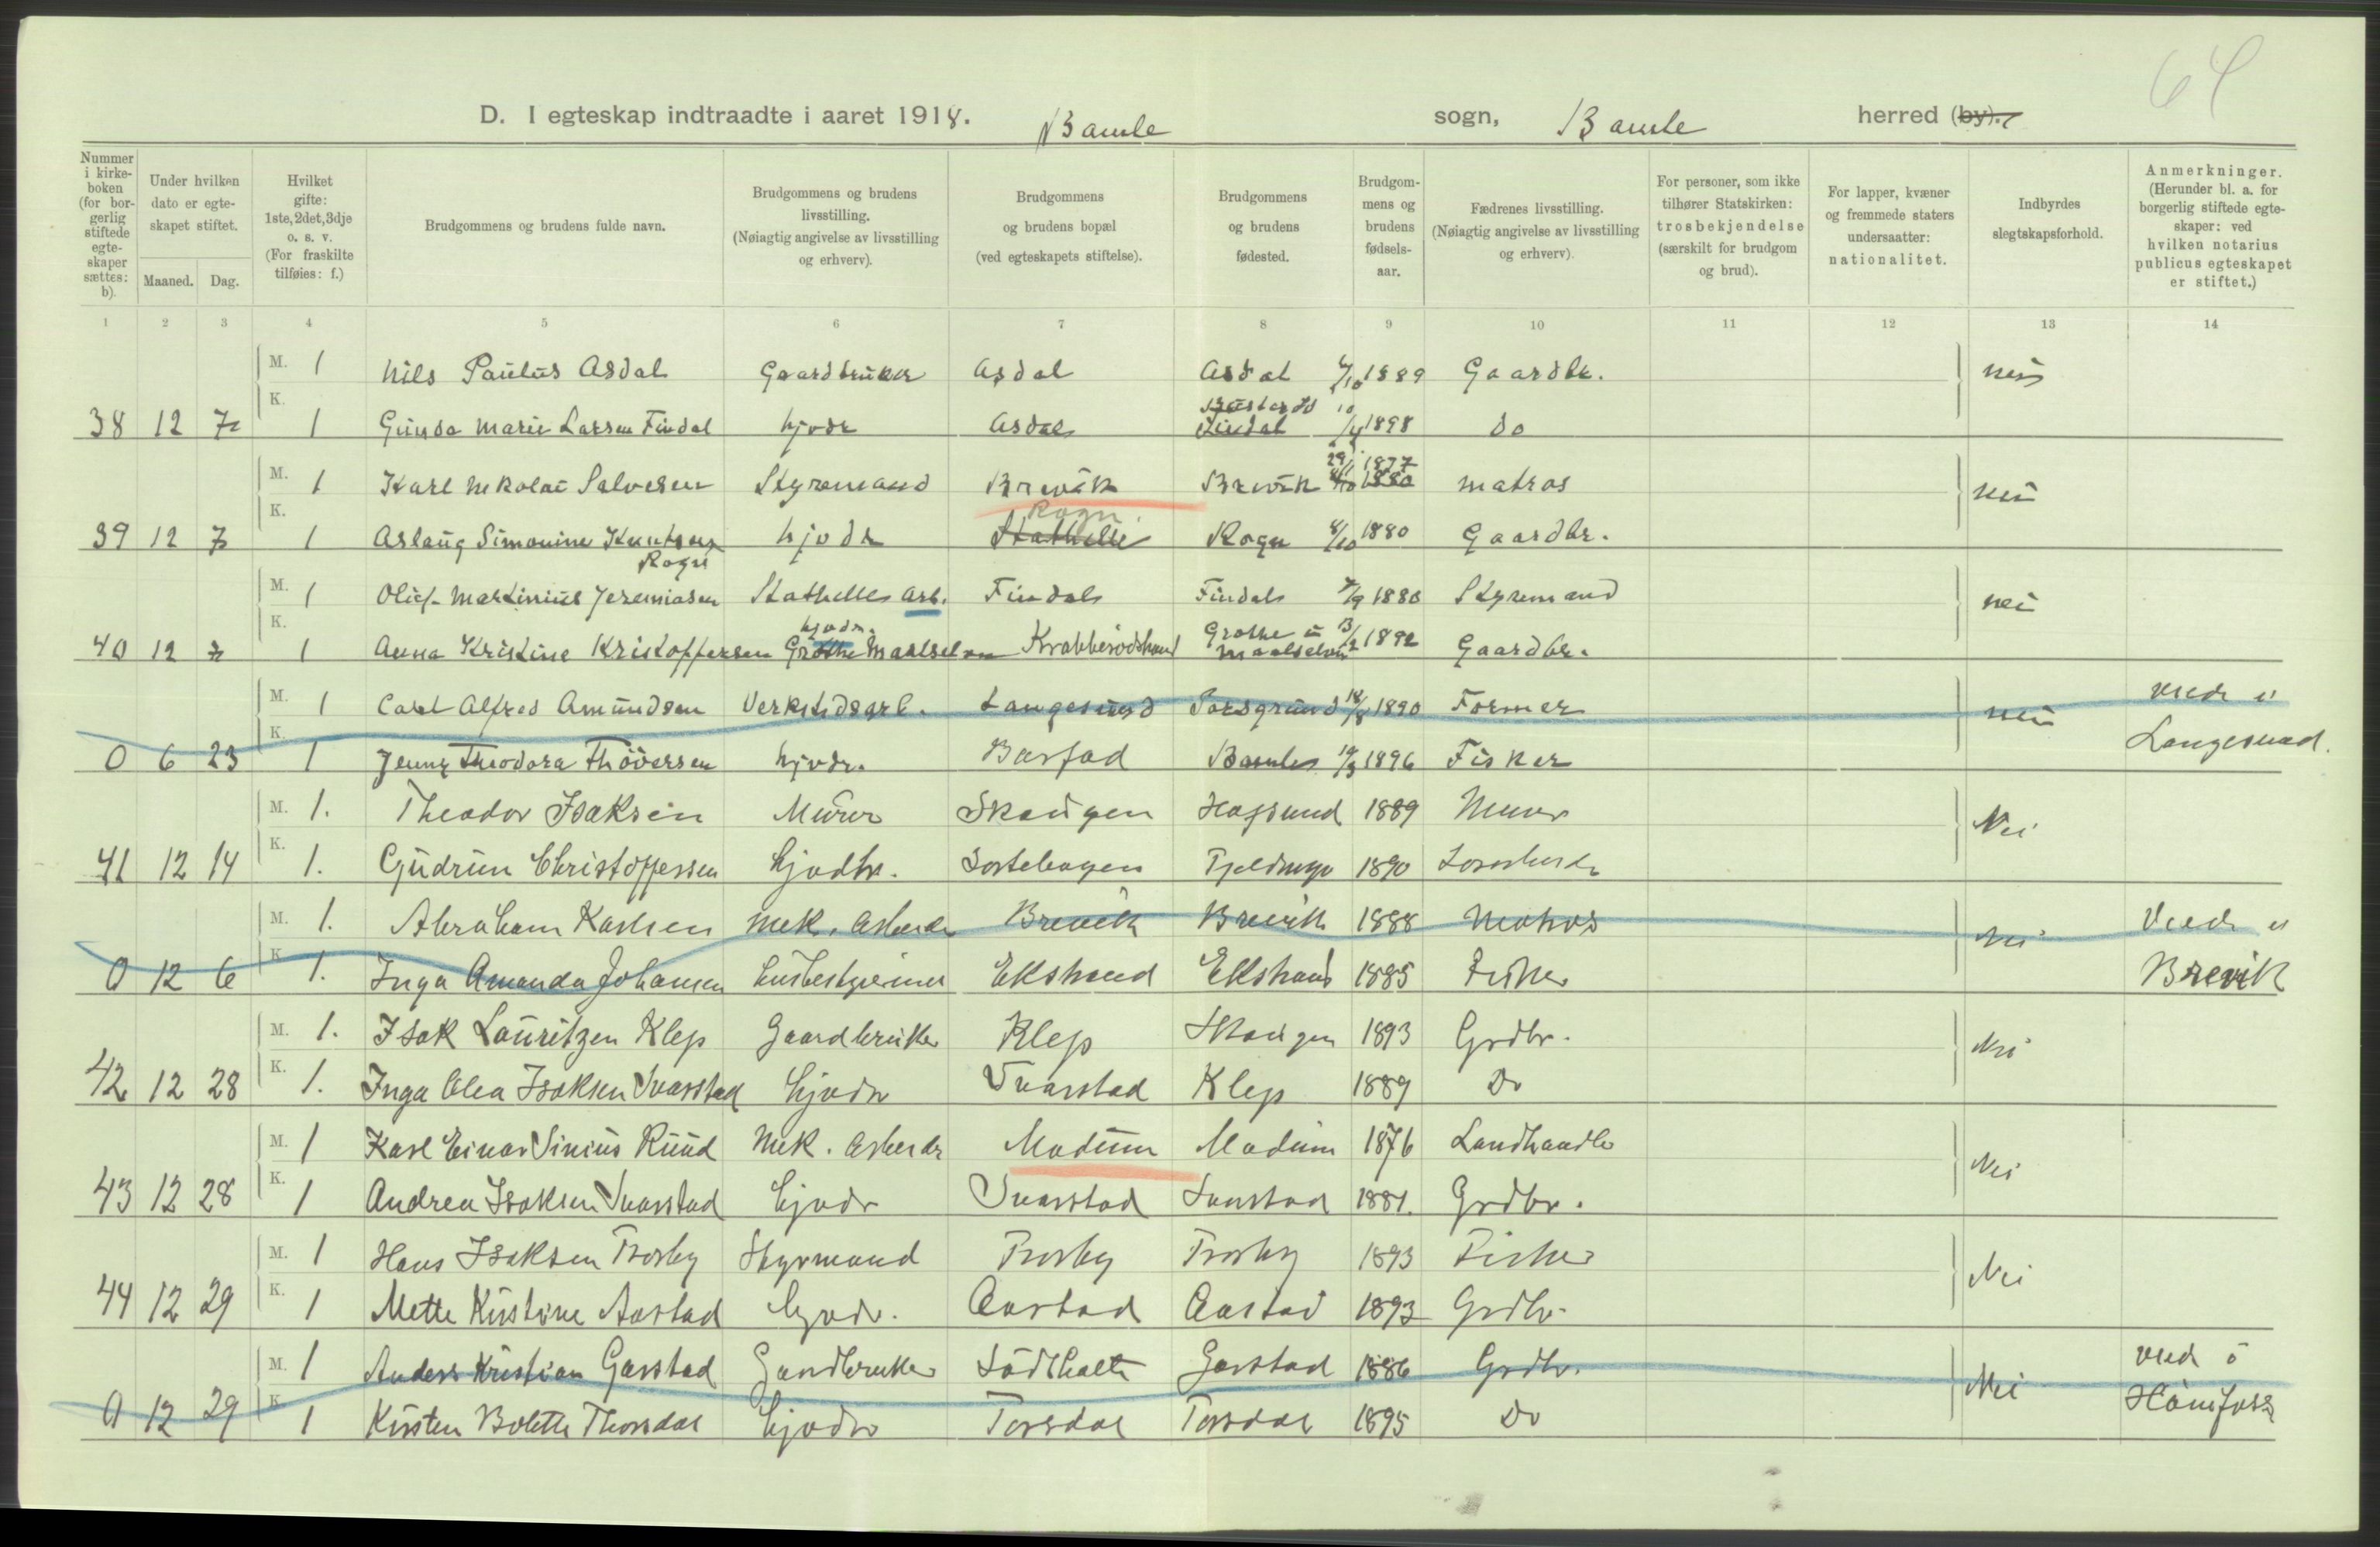 64
D. I egteskap indtraadte i aaret 1918. Bamle sogn, Bamle herred (by).
Nummer i kirkeboken (for borgerlig stiftede egteskaper sættes: b).
Under hvilken dato er egteskapet stiftet.
Maaned. Dag.
Hvilket gifte: 1ste, 2det, 3dje o. s. v. (For fraskilte tilføies: f.)
Brudgommens og brudens fulde navn.
Brudgommens og brudens livsstilling. (Nøiagtig angivelse av livsstilling og erhverv).
Brudgommens og brudens bopæl (ved egteskapets stiftelse).
Brudgommens og brudens fødested.
Brudgommens og brudens fødselsaar.
Fædrenes livsstilling. (Nøiagtig angivelse av livsstilling og erhverv).
For personer, som ikke tilhører Statskirken: trosbekjendelse (særskilt for brudgom og brud).
For lapper, kvæner og fremmede staters undersaatter: nationalitet.
Indbyrdes slegtskapsforhold.
Anmerkninger. (Herunder bl. a. for borgerlig stiftede egteskaper: ved hvilken notarius publicus egteskapet er stiftet.)
1 2 3 4 5 6 7 8 9 10 11 12 13 14
M. 1 Nils Paulus Asdal Gaardbruker Asdal Asdal 1889 Gaardbr. nei
38 12 7 K. 1 Gunda Marie Larsen Findal hjvdr Asdal Findal 1898 do
M. 1 Karl Nikolai Salvesen Styrmand Brevik Brevik 29/11 1877 1880 matros nei
39 12 7 K. 1 Aslaug Simonine Knutsen Rogn hjvdr Stathelle Rogn Rogn 8/10 1880 Gaardbr.
M. 1 Oluf Martinius Jeremiasen Stathelles arb. Findal Findal 7/9 1880 Styrmand nei
40 12 7 K. 1 Anna Kristine Kristoffersen hjvdr. Grothe Maalselven Krabberødstrand Grothe i Maalselven 1892 Gaardbr.
M. 1 Carl Alfred Amundsen Verkstedsarb. Langesund Porsgrund 18/8 1890 Former nei viede i Langesund.
0 6 23 K. 1 Jenny Theodora Thöversen hjvdr. Barfod Bamle 19/3 1896 Fisker
M. 1. Theodor Isaksen Murer Skaugen Hafsund 1889 Murer Nei
41 12 14 K. 1. Gudrun Christoffersen hjvdtr. Sortebogen 1890
M. 1. Abraham Karlsen Mek. Arbeider Brevik Brevik 1888 Matros Nei Viede i Brevik
0 12 6 K. 1. Inga Amanda Johansen husbestyrerinde Ekstrand Ekstrand 1885 Fisker
M. 1. Isak Lauritzen Klep Gaardbruker Klep Skaugen 1893 Grdbr. Nei
42 12 28 K. 1. Inga Olea Isaksen Svarstad hjvdr Svarstad Klep 1889 Do
M. 1 Karl Einar Sinius Ruud Mek. Arbeider Modum Modum 1876 Landhandler Nei
43 12 28 K. 1 Andrea Isaksen Svarstad hjvdr Svarstad Svarstad 1881. Grdbr.
M. 1 Hans Isaksen Trosby Styrmand Trosby Trosby 1893 Fisker Nei
44 12 29 K. 1 Mette Kirstine Aastad hjvdr. Aastad Aastad 1893 Grdbr.
M. 1 Anders Kristian Garstad Gaardbruker Garstad 1886 Grdbr. Nei viede i Hønefoss
0 12 29 K. 1 Kirsten Bolette Thorsdal hjvdr Torsdal Torsdal 1895 Do